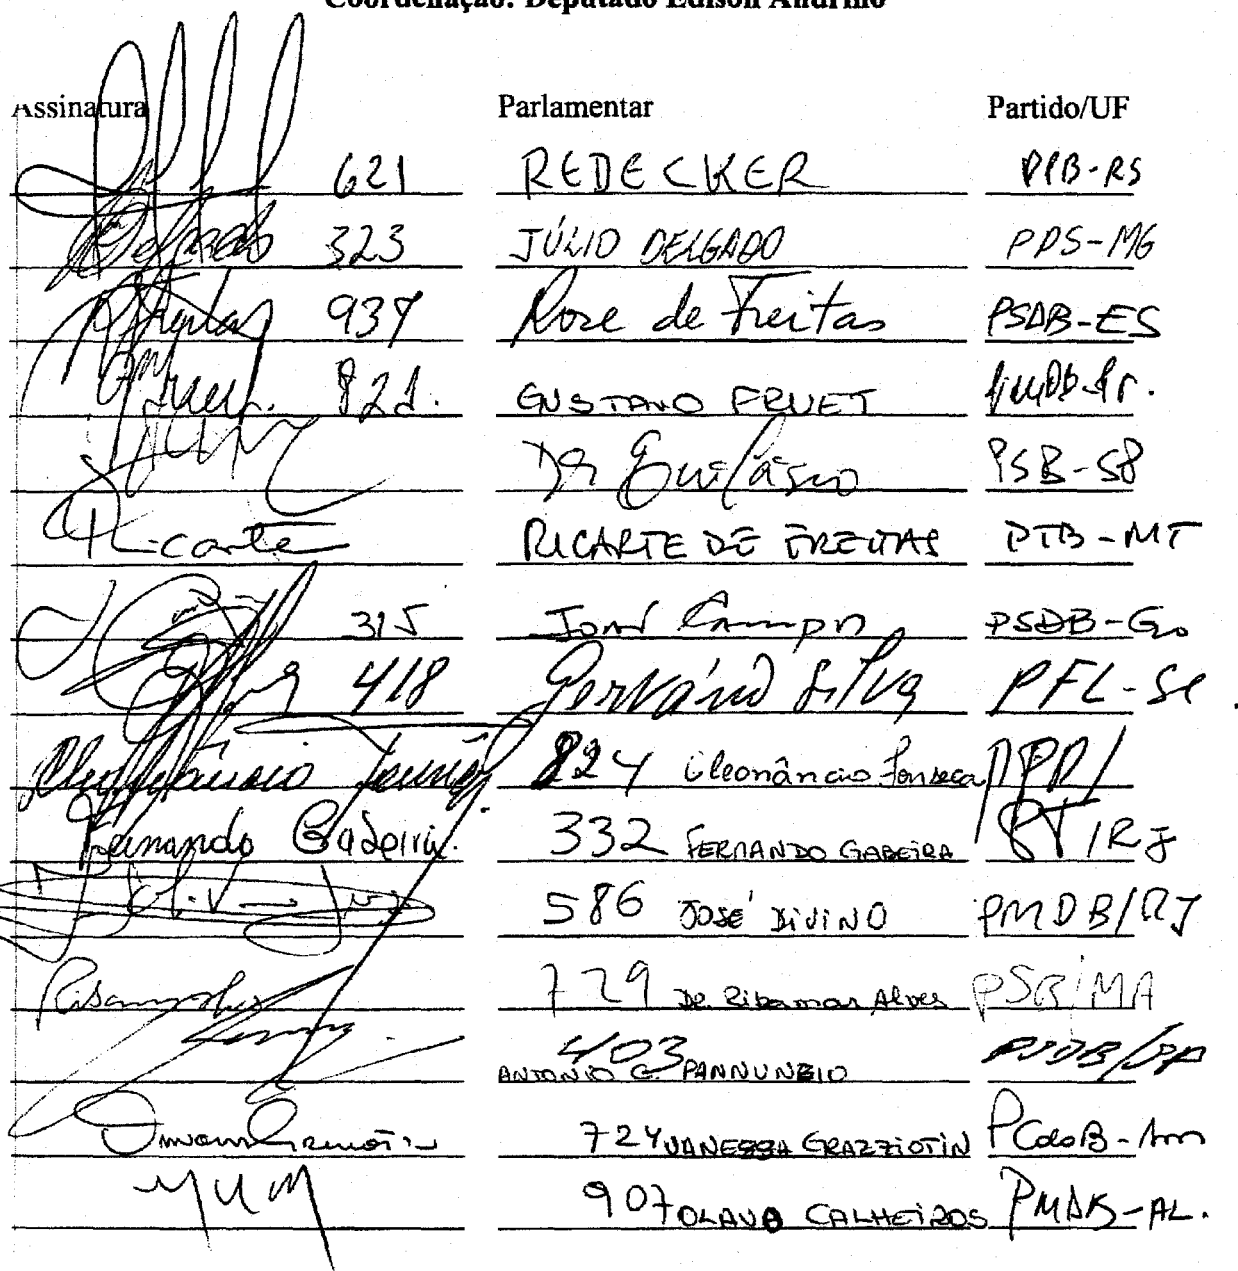 Coordenação: Deputado Edison Andrino
Assinatura Parlamentar Partido/UF
621 REDECKER PPB-RS
Delgado 323 JÚLIO DELGADO PPS-MG
RFreitas 937 Rose de Freitas PSDB-ES
821. GUSTAVO FRUET PMDB-Pr.
Dr Evilásio PSB-SP
Ricarte RICARTE DE FREITAS PTB-MT
315 João Campos PSDB-Go
418 Gervásio Silva PFL-SC
Cleonâncio Fonseca 824 Cleonâncio Fonseca PPB/
Fernando Gabeira. 332 FERNANDO GABEIRA PT/RJ
586 JOSÉ DIVINO PMDB/RJ
729 Dr. Ribamar Alves PSB/MA
403 ANTONIO C. PANNUNZIO PSDB/SP
724 VANESSA GRAZZIOTIN PCdoB-Am
907 OLAVO CALHEIROS PMDB-AL.